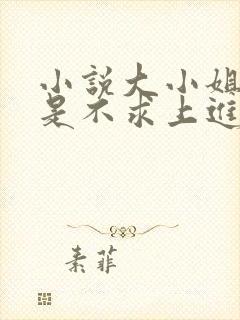 小說大小姐
是不求上進
素菲